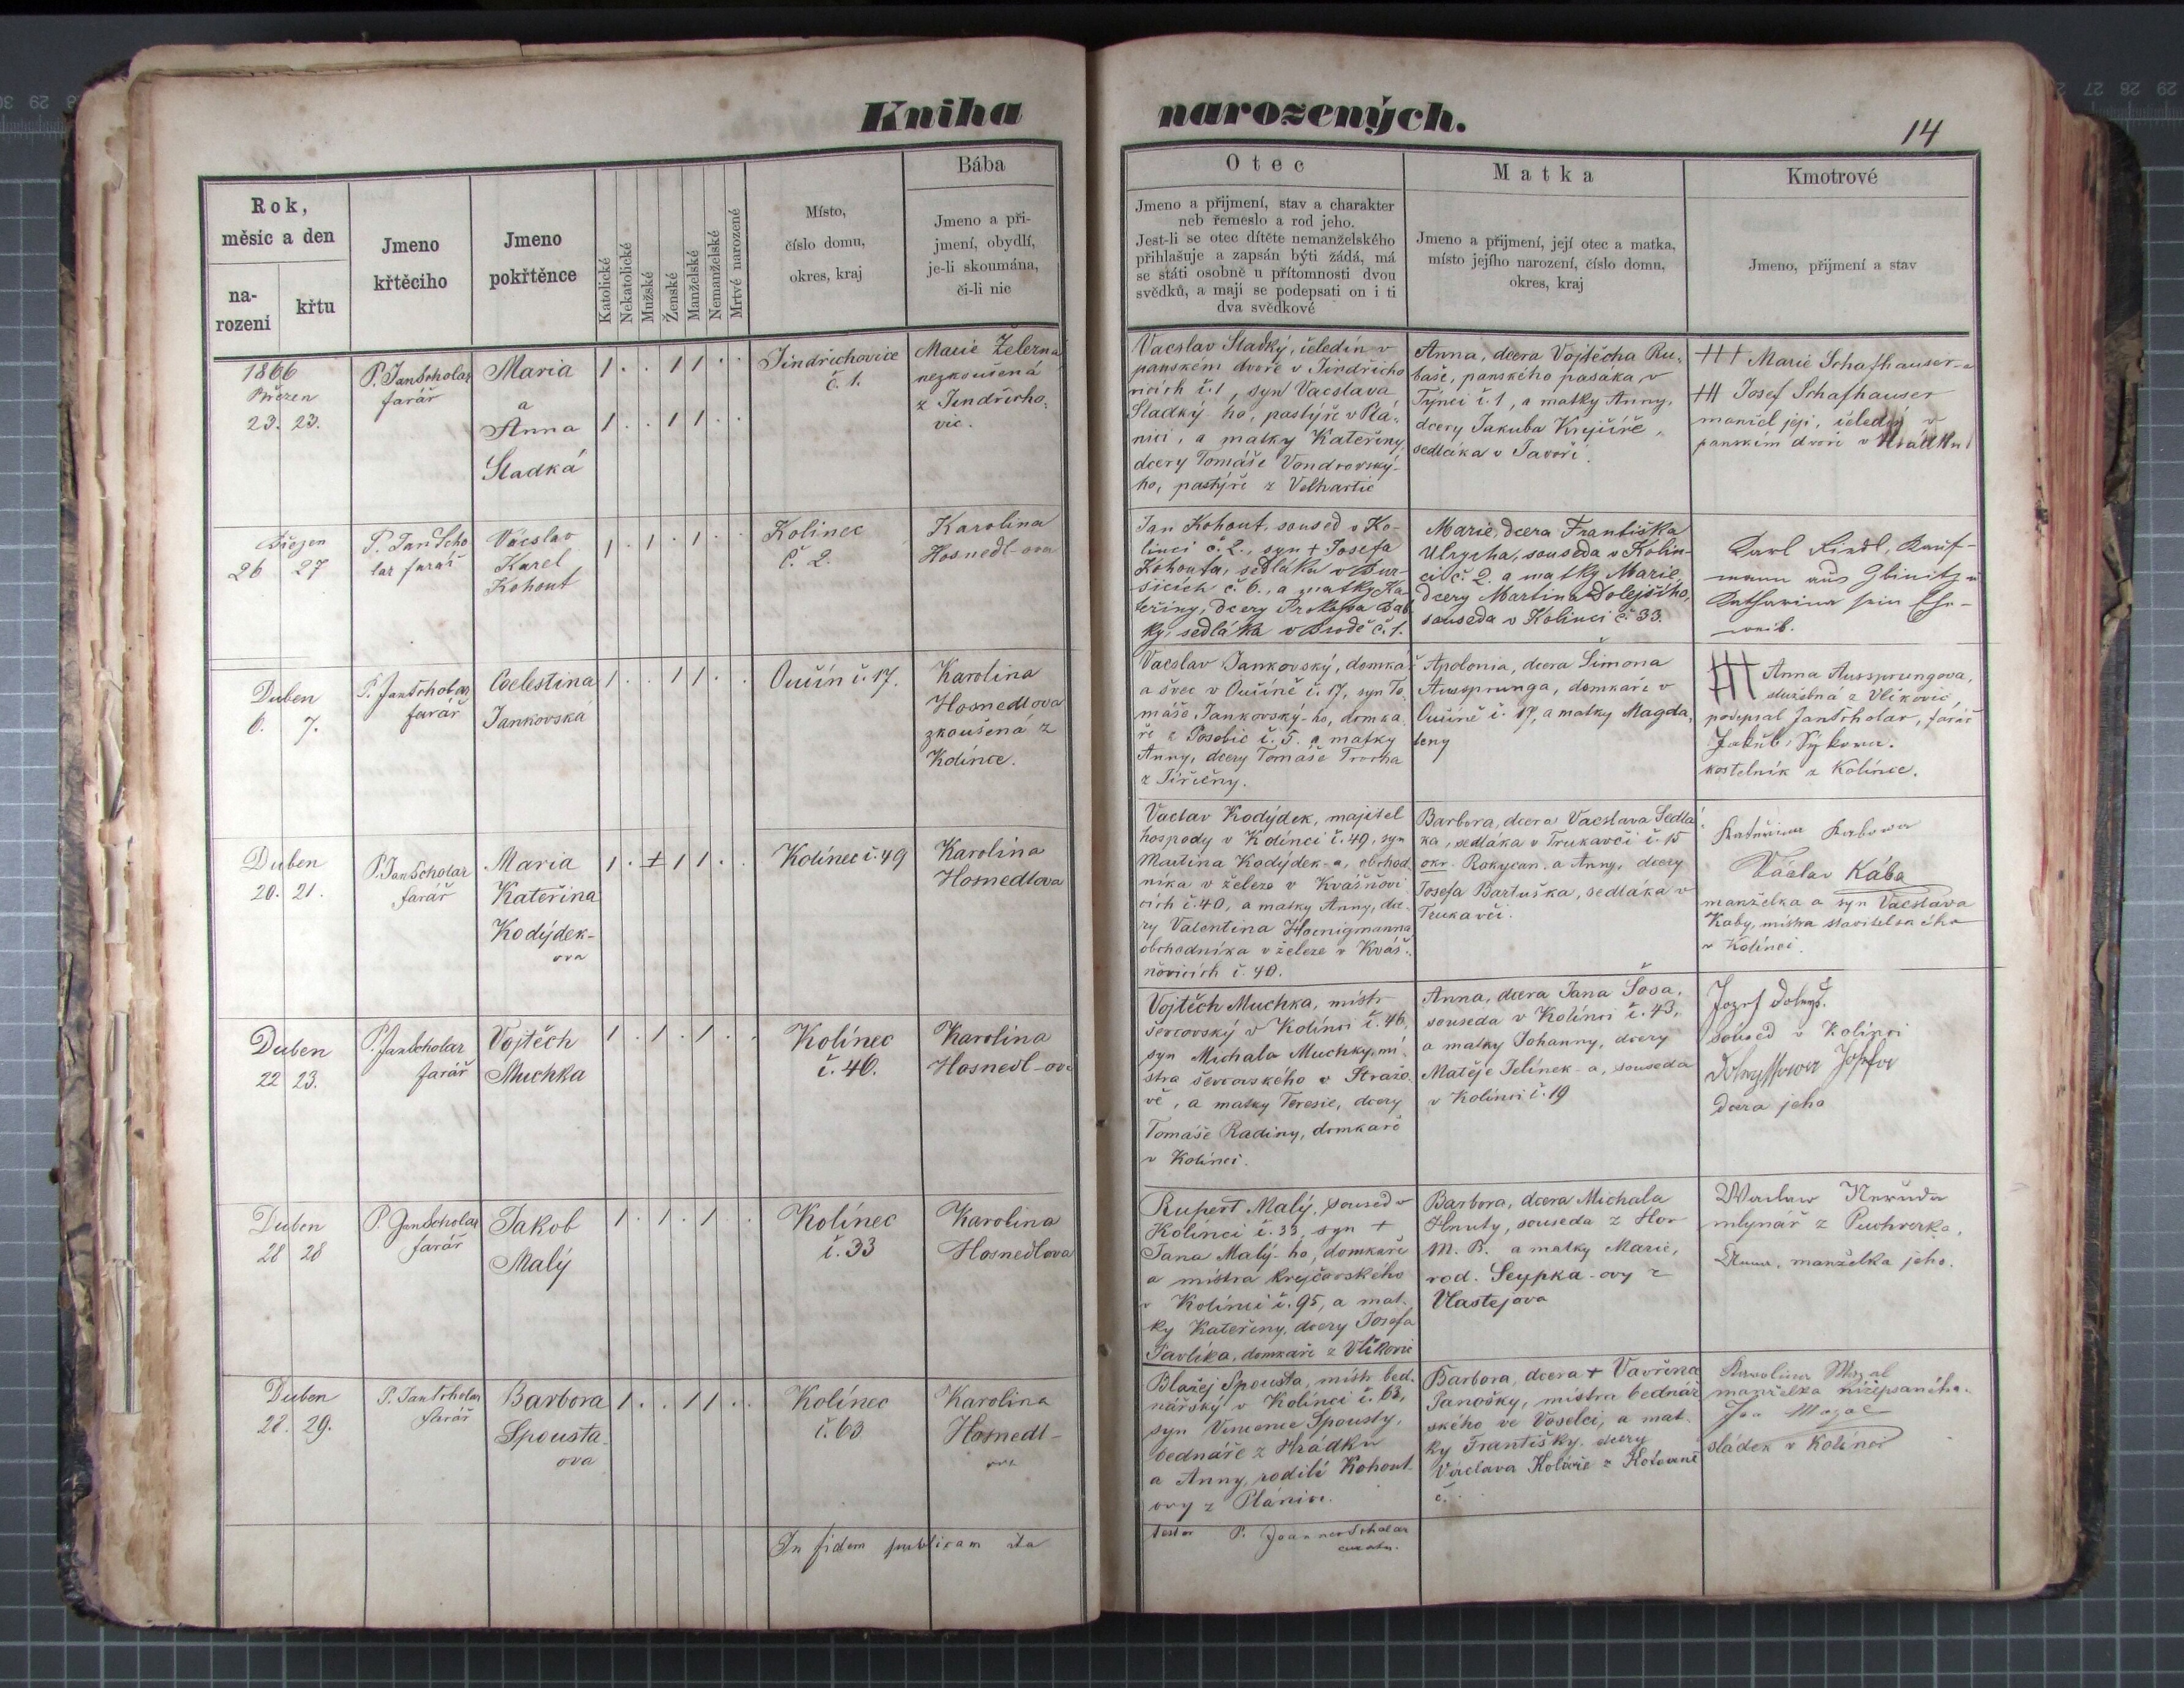 Kniha
narozených.
14
Rok,
měsíc a den
na-
rození
křtu
Jmeno
křtěcího
Jmeno
pokřtěnce
Katolické
Nekatolické
Mužské
Ženské
Manželské
Nemanželské
Mrtvé narozené
Místo,
číslo domu,
okres, kraj
Bába
Jmeno a při-
jmení, obydlí,
je-li skoumána,
či-li nic
Otec
Jmeno a přijmení, stav a charakter
neb řemeslo a rod jeho.
Jest-li se otec dítěte nemanželského
přihlašuje a zapsán býti žádá, má
se státi osobně u přítomnosti dvou
svědků, a mají se podepsati on i ti
dva svědkové
Matka
Jmeno a přijmení, její otec a matka,
místo jejího narození, číslo domu,
okres, kraj
Kmotrové
Jmeno, přijmení a stav
1866
Březen
23. 23.
P. Jan Scholar
farář
Maria
a
Anna
Sladká
1 . . 1 1 . .
1 . . 1 1 . .
Jindřichovice
č. 1.
Marie Železna
nezkoušená
z Jindřicho-
vic.
Vacslav Sladký, čeledín v
panském dvoře v Jindřicho
vicích č. 1, syn Vacslava
Sladký-ho, pastýře v Pla-
nici, a matky Kateřiny
dcery Tomáše Vondrovský-
ho, pastýře z Velhartic
Anna, dcera Vojtěcha Ru-
baše, panského pasáka v
Týnci č. 1, a matky Anny,
dcery Jakuba Krejčíře,
sedláka v Javoří.
+++ Marie Schafhauser-a
+++ Josef Schafhauser
manžel její, čeledín v
panském dvoře v Hrádku
Březen
26 27
P. Jan Scho
lar farář
Vácslav
Karel
Kohout
1 . 1 . 1 . .
Kolinec
č. 2.
Karolina
Hosnedl-ova
Jan Kohout, soused v Ko-
linci č. 2., syn + Josefa
Kohouta, sedláka v Bur-
šicích č. 6., a matky Ka-
teřiny, dcery Prokopa Bab
ky, sedláka v Brodě č. 1.
Marie, dcera Františka
Ulrycha, souseda v Kolin-
ci č. 2. a matky Marie,
dcery Martina Dolejšího,
souseda v Kolinci č. 33.
Karl Riedl, Kauf-
mann aus
Katharina sein Ehe-
weib.
Duben
6. 7.
P. Jan Scholar
farář
Coelestina
Jankovská
1 . . 1 1 . .
Oučín č. 17.
Karolina
Hosnedlova
zkoušená z
Kolínce.
Vacslav Jankovský, domkař
a švec v Oučíně č. 17, syn To-
máše Jankovský-ho, domka-
ře z Posobic č. 5. a matky
Anny, dcery Tomáše
z Jiřičny.
Apolonia, dcera Šimona
Aussprunga, domkaře v
Oučíně č. 17, a matky Magda-
leny
+++ Anna Aussprungova,
služebná z Vlčkovic,
podepsal Jan Scholar, farář
Jakub Sýkora.
kostelník z Kolínce.
Duben
20. 21.
P. Jan Scholar
farář
Maria
Kateřina
Kodýdek-
ova
1 . ± 1 1 . .
Kolínec č. 49
Karolina
Hosnedlova
Vaclav Kodýdek, majitel
hospody v Kolínci č. 49, syn
Martina Kodýdek-a, obchod-
níka v železe v Kvášňovi-
cích č. 40, a matky Anny, dce-
ry Valentina Hoenigmanna
obchodníka v železe v Kváš-
ňovicích č. 40.
Barbora, dcera Vacslava Sedlá-
ka, sedláka v Trukavči č. 15
okr. Rokycan. a Anny, dcery
Josefa Bartuška, sedláka v
Trukavči.
Kateřina Kabowa
Václav Kába
manželka a syn Vacslava
Kaby, mistra stavitelského
v Kolínci.
Duben
22 23.
P. Jan Scholar
farář
Vojtěch
Muchka
1 . 1 . 1 . .
Kolínec
č. 46.
Karolina
Hosnedl-ova
Vojtěch Muchka, mistr
ševcovský v Kolínci č. 46,
syn Michala Muchky, mi-
stra ševcovského v Strážo-
vě, a matky Teresie, dcery
Tomáše Radiny, domkaře
v Kolínci.
Anna, dcera Jana Šosa,
souseda v Kolínci č. 43,
a matky Johanny, dcery
Matěje Jelínek-a, souseda
v Kolínci č. 19
Jozef
soused v Kolínci
dcera jeho
Duben
28 28
P. Jan Scholar
farář
Jakob
Malý
1 . 1 . 1 . .
Kolínec
č. 33
Karolina
Hosnedlova
Rupert Malý, soused v
Kolínci č. 33, syn +
Jana Malý-ho, domkaře
a mistra krejčovského
v Kolínci č. 95, a mat-
ky Kateřiny, dcery Josefa
Pavlíka, domkaře z Vlčkovic
Barbora, dcera Michala
Hnuty, souseda z Hor
M. B. a matky Marie,
rod. Seypka-ovy z
Vlastějova
Waclaw Neruda
mlynář z Puchverka,
Anna, manželka jeho.
Duben
28. 29.
P. Jan Scholar
farář
Barbora
Spousta-
ova
1 . . 1 1 . .
Kolínec
č. 63
Karolina
Hosnedl-
ova
Blažej Spousta, mistr bed-
nářský v Kolínci č. 63,
syn Vincence Spousty,
bednáře z Hrádku
a Anny, rodilé Kohout-
ovy z Plánice.
Barbora, dcera + Vavřína
Janošky, mistra bednář-
ského ve Voselci, a mat-
ky Františky, dcery
Václava Koláře z
č.
Karolina
manželka nížepsaného.
Jan
sládek v Kolínci
In fidem publicam ita
testor P. Joannes Scholar
curatus.